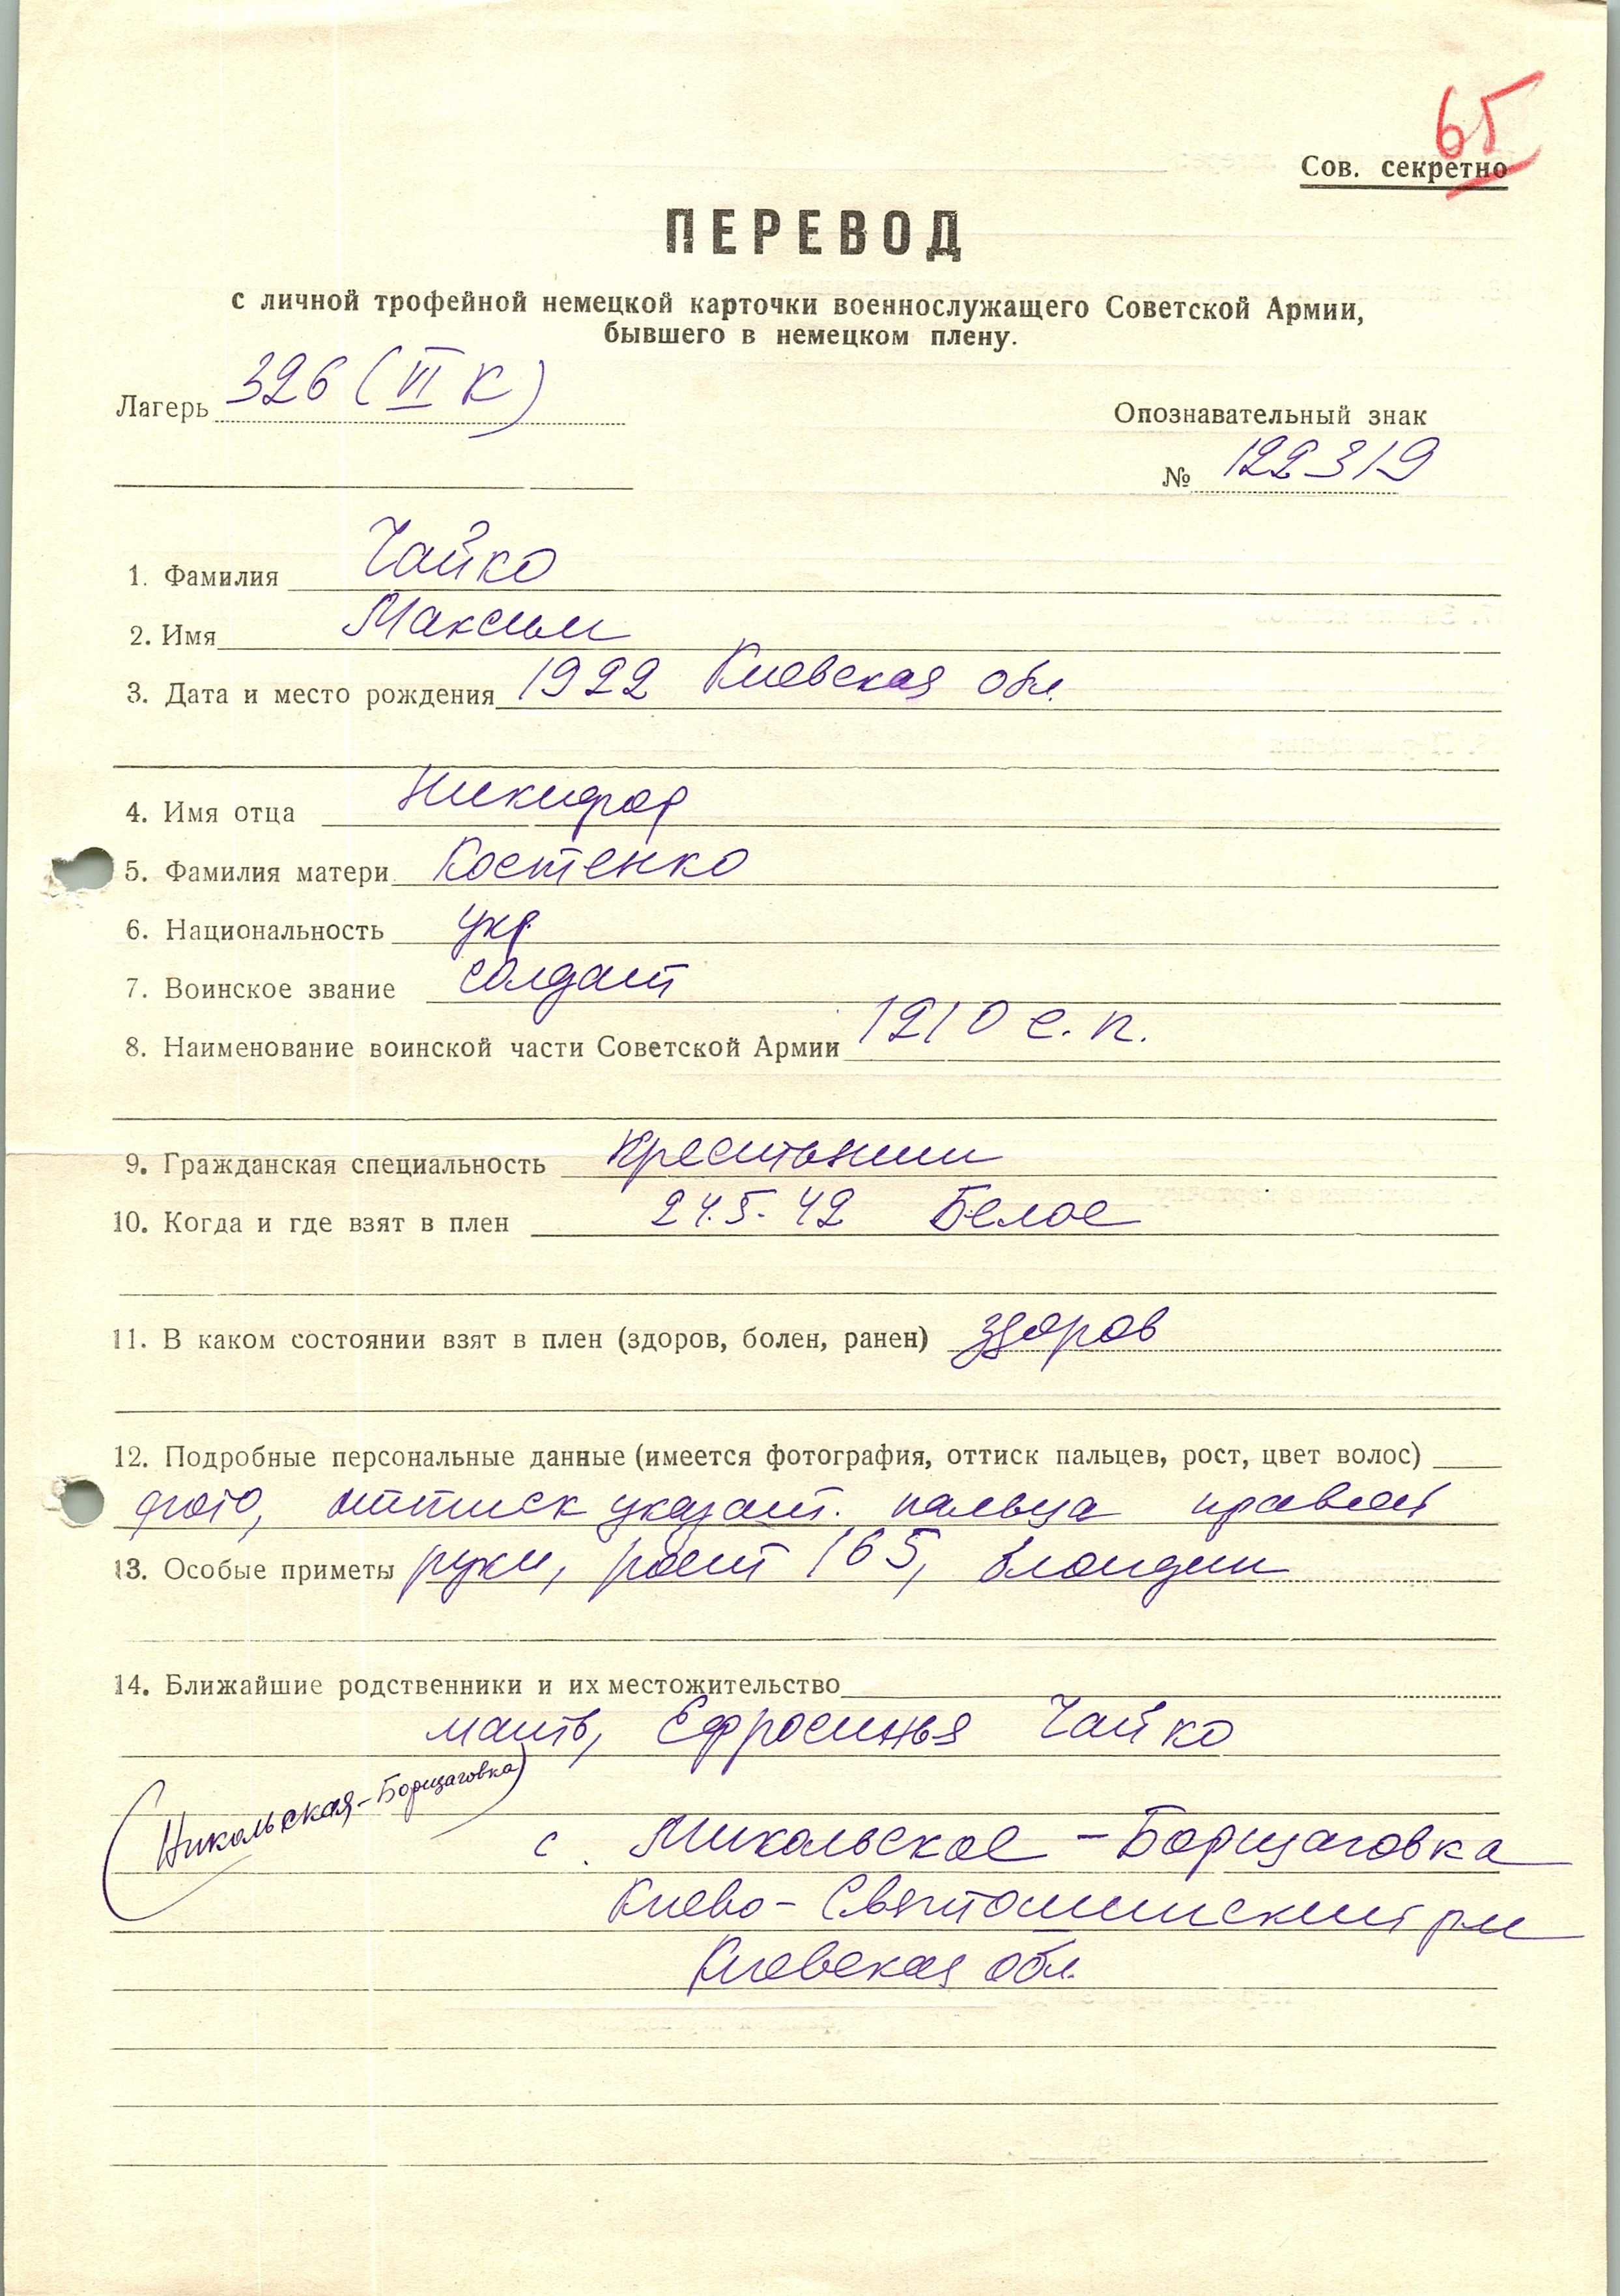 65
Сов. секретно
ПЕРЕВОД
с личной трофейной немецкой карточки военнослужащего Советской Армии,
бывшего в немецком плену.
Лагерь 326 (VI К)
Опознавательный знак
№ 122319
1. Фамилия Чайко
2. Имя Максим
3. Дата и место рождения 1922 Киевская обл.
4. Имя отца Никифор
5. Фамилия матери Костенко
6. Национальность укр.
7. Воинское звание солдат
8. Наименование воинской части Советской Армии 1210 с. п.
9. Гражданская специальность Крестьянин
10. Когда и где взят в плен 24.5.42 Белое
11. В каком состоянии взят в плен (здоров, болен, ранен) здоров
12. Подробные персональные данные (имеется фотография, оттиск пальцев, рост, цвет волос)
фото, оттиск указат. пальца правой
13. Особые приметы руки, рост 165, блондин
14. Ближайшие родственники и их местожительство
мать, Ефросинья Чайко
(Никольская-Борщаговка)
с. Микольское-Борщаговка
Киево-Святошинский р-н
Киевская обл.